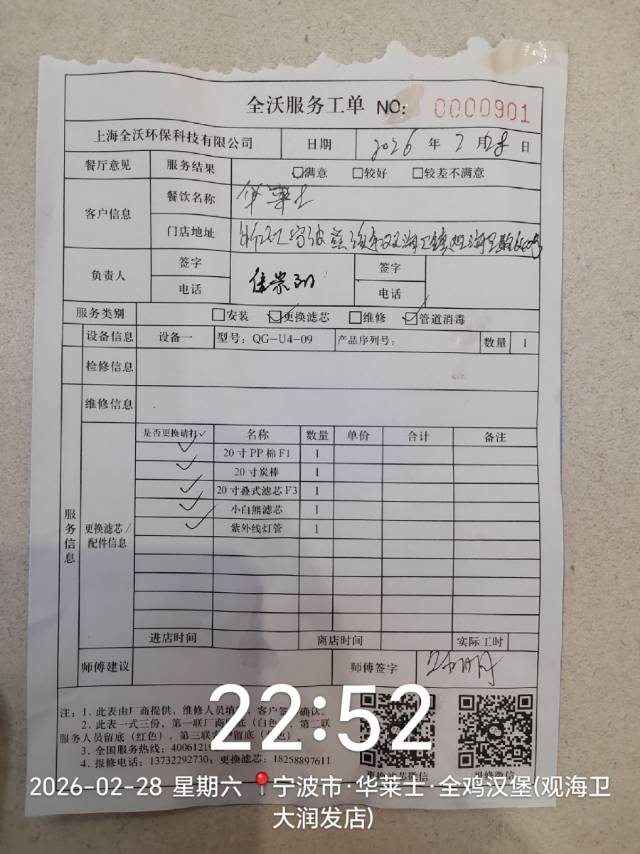 全沃服务工单 NO: 0000901
上海全沃环保科技有限公司 日期 2026 年 2 月 28 日
餐厅意见 服务结果 满意 较好 较差不满意
客户信息 餐饮名称 华莱士
门店地址
负责人 签字 签字
电话 电话
服务类别 安装 更换滤芯 维修 管道消毒
设备信息 设备一 型号: QG-U4-09 产品序列号: 数量 1
检修信息
维修信息
服务信息
更换滤芯/配件信息
是否更换请打✓ 名称 数量 单价 合计 备注
✓ 20寸PP棉F1 1
✓ 20寸炭棒 1
✓ 20寸叠式滤芯F3 1
✓ 小白熊滤芯 1
✓ 紫外线灯管 1
进店时间 离店时间 实际工时
师傅建议 师傅签字
注: 1. 此表由厂商提供, 维修人员填 客户签 确认
2. 此表一式三份, 第一联厂商 底(白色) 第二联
服务人员留底(红色), 第三联 留底
3. 全国服务热线: 4006121
4. 报修电话: 13732292730; 更换滤芯: 18258897611
更换滤芯微信 报修微信
22:52
2026-02-28 星期六 宁波市·华莱士·全鸡汉堡(观海卫
大润发店)